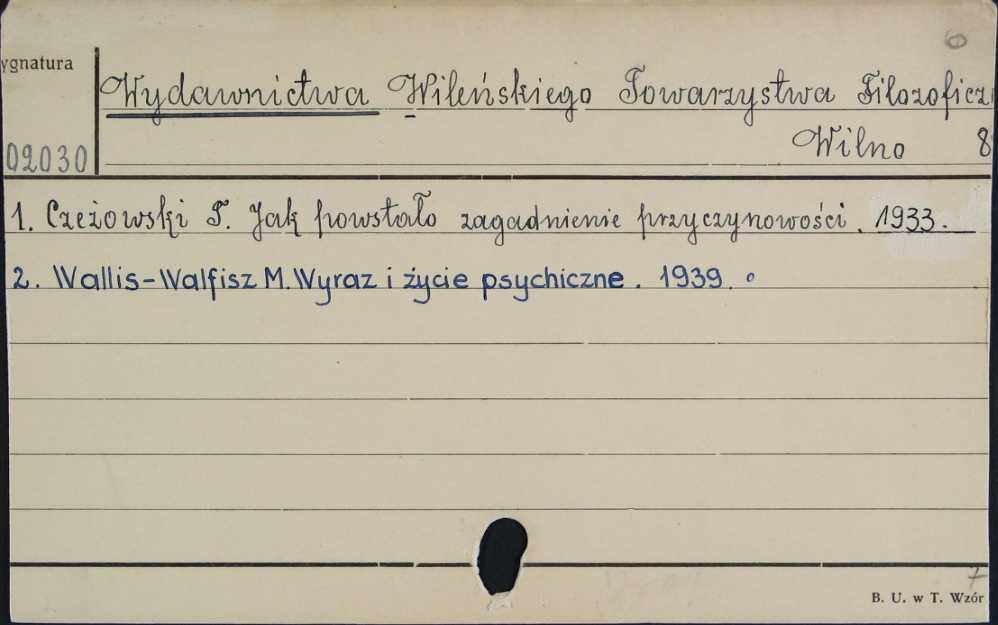 6
ygnatura
Wydawnictwa Wileńskiego Towarzystwa Filozoficz
Wilno 8
02030
1. Czeżowski T. Jak powstało zagadnienie przyczynowości. 1933.
2. Wallis-Walfisz M. Wyraz i życie psychiczne. 1939.
7
B. U. w T. Wzór